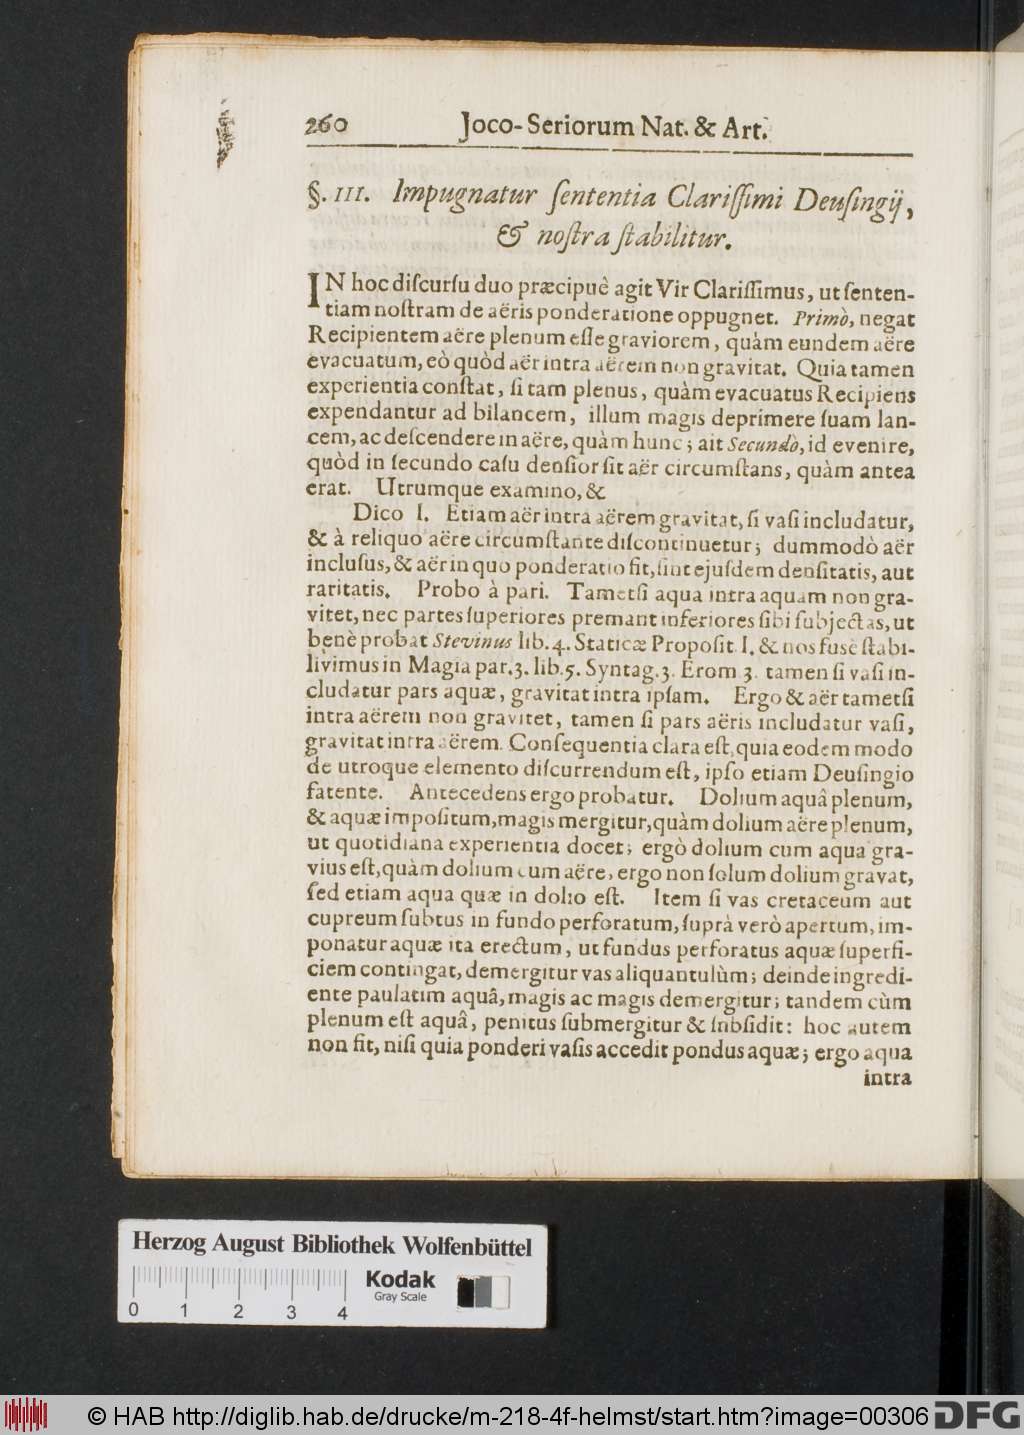 260 Joco-Seriorum Nat. & Art.
§. III. Impugnatur ſententia Clariſſimi Deuſingij,
& noſtra ſtabilitur.
IN hoc diſcurſu duo præcipuè agit Vir Clariſſimus, ut ſenten-
tiam noſtram de aëris ponderatione oppugnet. Primò, negat
Recipientem aëre plenum eſſe graviorem, quàm eundem aëre
evacuatum, eò quòd aër intra aërem non gravitat. Quia tamen
experientia conſtat, ſi tam plenus, quàm evacuatus Recipiens
expendantur ad bilancem, illum magis deprimere ſuam lan-
cem, ac deſcendere in aëre, quàm hunc; ait Secundò, id evenire,
quòd in ſecundo caſu denſior ſit aër circumſtans, quàm antea
erat. Utrumque examino, &
Dico I. Etiam aër intra aërem gravitat, ſi vaſi includatur,
& à reliquo aëre circumſtante diſcontinuetur; dummodò aër
incluſus, & aër in quo ponderatio fit, ſint ejuſdem denſitatis, aut
raritatis. Probo à pari. Tametſi aqua intra aquam non gra-
vitet, nec partes ſuperiores premant inferiores ſibi ſubjectas, ut
benè probat Stevinus lib. 4. Staticæ Propoſit. I. & nos fusè ſtabi-
livimus in Magia par. 3. lib. 5. Syntag. 3. Erom 3. tamen ſi vaſi in-
cludatur pars aquæ, gravitat intra ipſam. Ergo & aër tametſi
intra aërem non gravitet, tamen ſi pars aëris includatur vaſi,
gravitat intra aërem. Conſequentia clara eſt, quia eodem modo
de utroque elemento diſcurrendum eſt, ipſo etiam Deuſingio
fatente. Antecedens ergo probatur. Dolium aquâ plenum,
& aquæ impoſitum, magis mergitur, quàm dolium aëre plenum,
ut quotidiana experientia docet; ergò dolium cum aqua gra-
vius eſt, quàm dolium cum aëre, ergo non ſolum dolium gravat,
ſed etiam aqua quæ in dolio eſt. Item ſi vas cretaceum aut
cupreum ſubtus in fundo perforatum, ſuprà verò apertum, im-
ponatur aquæ ita erectum, ut fundus perforatus aquæ ſuperfi-
ciem contingat, demergitur vas aliquantulùm; deinde ingredi-
ente paulatim aquâ, magis ac magis demergitur; tandem cùm
plenum eſt aquâ, penitus ſubmergitur & ſubſidit: hoc autem
non fit, niſi quia ponderi vaſis accedit pondus aquæ; ergo aqua
intra
Herzog August Bibliothek Wolfenbüttel
Kodak
Gray Scale
0 1 2 3 4
© HAB http://diglib.hab.de/drucke/m-218-4f-helmst/start.htm?image=00306 DFG